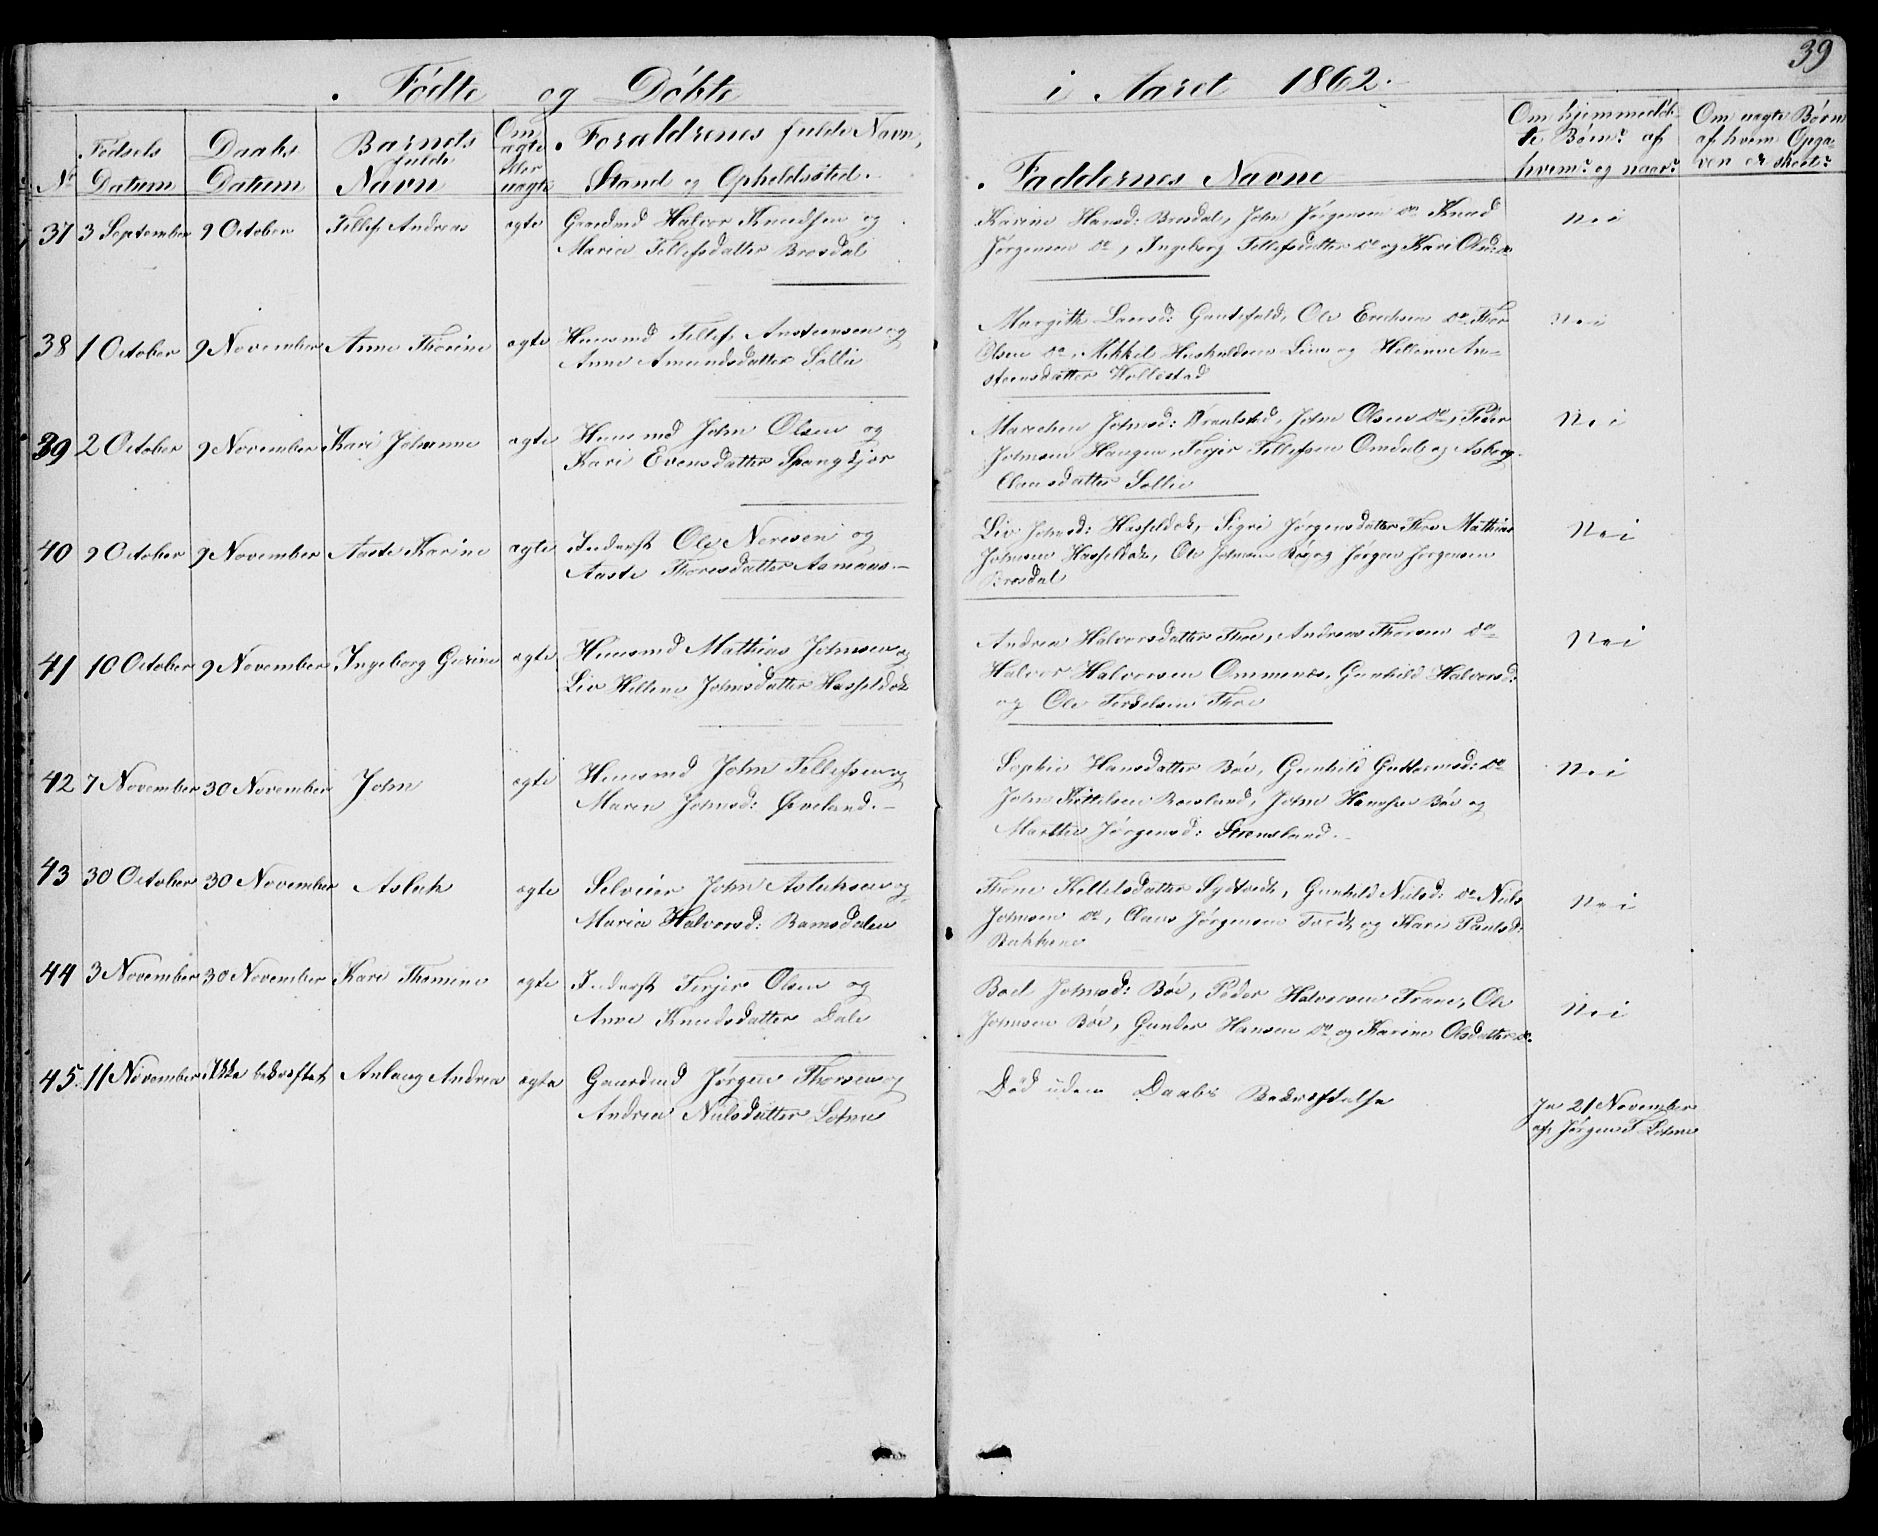 39
Fødte og Døbte i Aaret 1862.
No
Fødsels Datum
Daabs Datum
Barnets fulde Navn
Om ægte eller uægte
Forældrenes fulde Navn,
Stand og Opholdssted.
Faddernes Navne
Om hjemmedøb-
te Børn? af
hvem? og naar?
Om uægte Børn
af hvem Opga-
ven er skeet?
37 3 September 9 October Tellef Andreas ægte Gaardmd Halvor Knudsen og
Maria Tellefsdatter Brosdal
Karine Hansd: Brosdal, John Jørgensen do Knud
Jørgensen do, Ingeborg Tellefsdatter do og Kari Olsd: do
Nei
38 1 October 9 November Anne Thorine ægte Huusmd Tellef Anstensen og
Anne Amundsdatter Sollie
Margith Laersd: Gautefald, Ole Erichsen do, Thor
Olsen do, Mikkel Huskuldsen Lien og Hellene An-
stensdatter Hollestad
Nei
39 2 October 9 November Kari Johanne ægte Huusmd John Olsen og
Kari Evensdatter Spangkjær
Marchen Johnsd: John Olsen do, Peder
Johnsen Haugen, Terjer Tellefsen Omdal og Asberg
Clausdatter Sollie
Nei
40 9 October 9 November Aaste Karine ægte Inderst Ole Neresen og
Aaste Thoresdatter Aamaas.—
Liv Johnsd: Hasseldok, Sigri Jørgensdatter Thoe Mathias
Johnsen Hasseldok, Ole Johnsen Bøe og Jørgen Jørgensen
Brosdal
Nei
41 10 October 9 November Ingeborg Gurine ægte Huusmd Mathias Johnsen og
Liv Hellene Johnsdatter Hasseldok
Andrea Halvorsdatter Thoe, Andreas Thorsen do
Halvor Halvorsen Ommenæs, Gunhild Halvorsd:
og Ole Terkelsen Thoe
Nei
42 7 November 30 November John ægte Huusmd John Tellefsen og
Maren Johnsd: Øveland.—
Sophie Hansdatter Bøe, Gunhild Guttormsd: do
John Kittelsen Roesland, John Hansen Bøe og
Marthe Jørgensd: Strensland.—
Nei
43 30 October 30 November Asluk ægte Selveier John Asluksen og
Maria Halvorsd: Ramsdalen
Thone Kettelsdatter Sydtvedt, Gunhild Nulsd: do Nuls
Johnsen do, Claus Jørgensen Tvedt og Kari Paulsd:
Bakkene
Nei
44 3 November 30 November Kari Thomine ægte Inderst Terjer Olsen og
Anne Knudsdatter Dale
Boel Johnsd: Bøe, Peder Halvorsen Trane, Ole
Johnsen Bøe, Gunder Hansen do og Karine Olsdatter do.
Nei
45 11 November Ikke bekræftet Anlaug Andrea ægte Gaardmd Jørgen Thorsen og
Andrea Nulsdatter Lofthne
Død uden Daabs Bekræftelse
Ja 21 November
af Jørgen T.